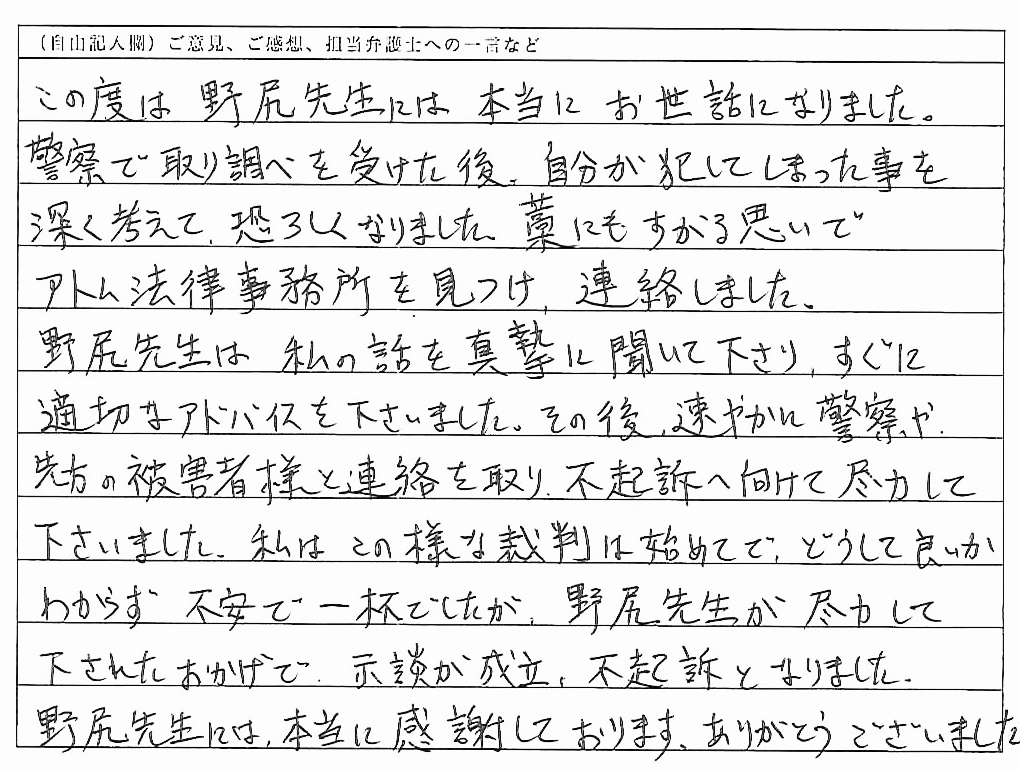 (自由記入欄)ご意見、ご感想、担当弁護士への一言など
この度は 野尻先生には 本当に お世話になりました。
警察で取り調べを受けた後、自分が犯してしまった事を
深く考えて、恐ろしくなりました。藁にもすがる思いで
アトム法律事務所を見つけ、連絡しました。
野尻先生は 私の話を真摯に聞いて下さり、すぐに
適切なアドバイスを下さいました。その後、速やかに警察や、
先方の被害者様と連絡を取り、不起訴へ向けて尽力して
下さいました。私は この様な裁判は始めてで、どうして良いか
わからず 不安で一杯でしたが、野尻先生が尽力して
下されたおかげで、示談が成立、不起訴となりました。
野尻先生には、本当に感謝しております、ありがとうございました